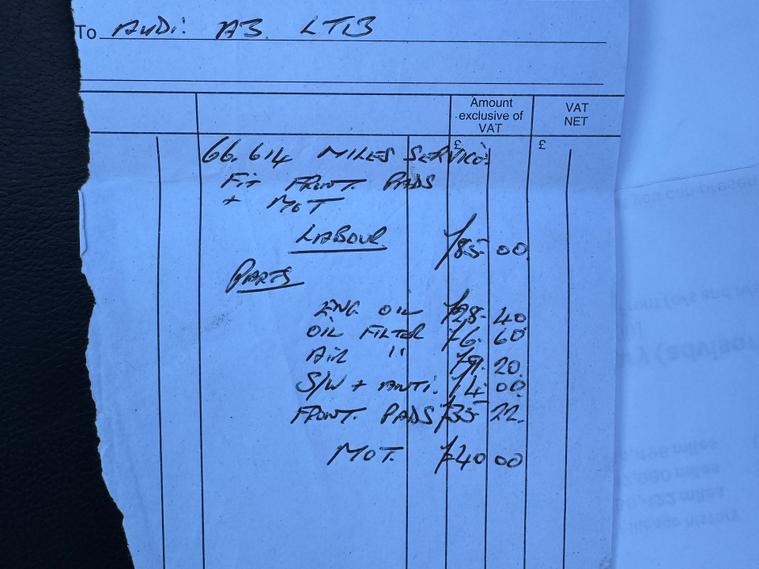 To Audi: A3. LT13
Amount exclusive of VAT
VAT NET
£
£
66.614 MILES SERVICE:
FIT FRONT. PADS
+ MOT
LABOUR £85-00
PARTS
ENG OIL £28-40
OIL FILTER £6-60
AIR " £9.20
S/W + ANTI. £4.00
FRONT. PADS £35-22.
MOT. £40 00
you can presen
miles
miles
miles
history